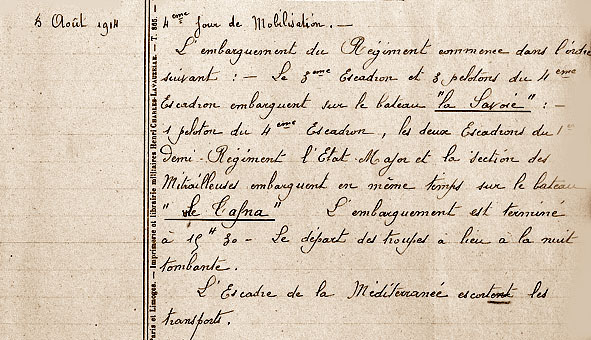 5 Août 1914
4eme Jour de Mobilisation. —
L'embarquement du Régiment commence dans l'ordre
suivant : — Le 3eme Escadron et 3 pelotons du 4eme
Escadron embarquent sur le bateau "la Savoie" : —
1 peloton du 4eme Escadron, les deux Escadrons du 1er
demi-Régiment l'Etat-Major et la section des
Mitrailleuses embarquent en même temps sur le bateau
" le Tafna " L'embarquement est terminé
à 15H 30 — Le départ des troupes a lieu à la nuit
tombante.
L'Escadre de la Méditerranée escortent les
transports.
Paris et Limoges. — Imprimerie et librairie militaires Henri CHARLES-LAVAUZELLE. — T. 865. —